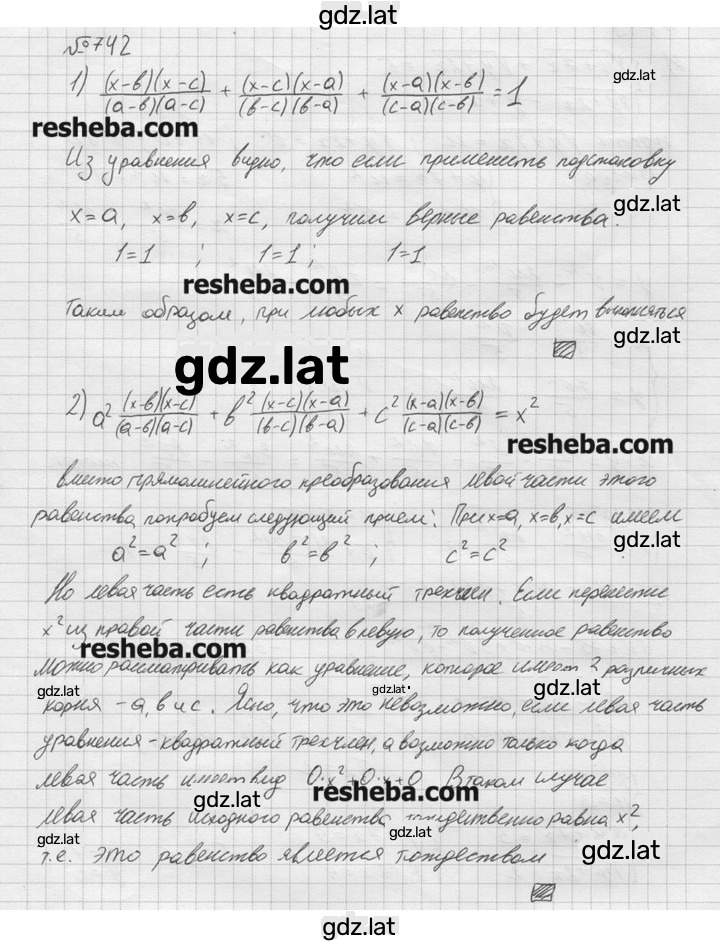 gdz.lat
№742
1) (x-в)(x-c)/(a-в)(a-c) + (x-c)(x-a)/(в-c)(в-a) + (x-a)(x-в)/(c-a)(c-в) = 1
gdz.lat
resheba.com
Из уравнения видно, что если применить подстановку
x=a, x=в, x=c, получим верные равенства.
gdz.lat
1=1 ; 1=1 ; 1=1
resheba.com
Таким образом, при любых x равенство будет выполняться
gdz.lat
gdz.lat
2) a² (x-в)(x-c)/(a-в)(a-c) + в² (x-c)(x-a)/(в-c)(в-a) + c² (x-a)(x-в)/(c-a)(c-в) = x²
resheba.com
вместо прямолинейного преобразования левой части этого
равенства попробуем следующий прием: При x=a, x=в, x=c имеем
a²=a² ; в²=в² ; c²=c²
Но левая часть есть квадратный трехчлен. Если перенести
x² из правой части равенства в левую, то полученное равенство
resheba.com
можно рассматривать как уравнение, которое имеет 2 различных
gdz.lat gdz.lat gdz.lat
корня - a, в и c. Ясно, что это невозможно, если левая часть
уравнения - квадратный трехчлен, а возможно только когда
левая часть имеет вид 0·x²+0·x+0. В таком случае
gdz.lat resheba.com
левая часть исходного равенства тождественно равна x²,
gdz.lat
т.е. это равенство является тождеством
gdz.lat
gdz.lat